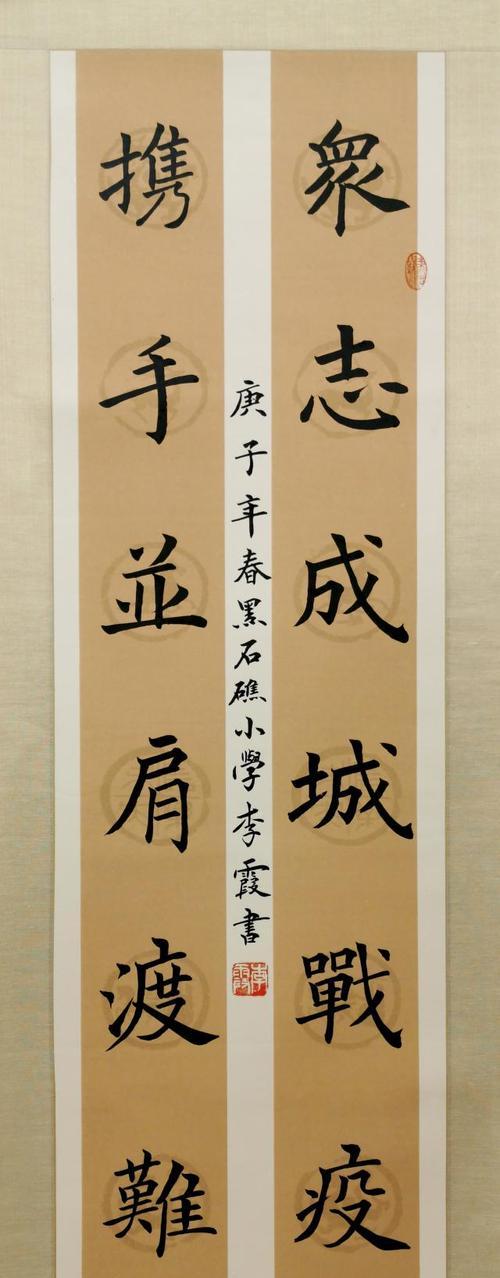 眾志成城戰疫
携手並肩渡難
庚子年春黑石礁小學李霞書
李霞